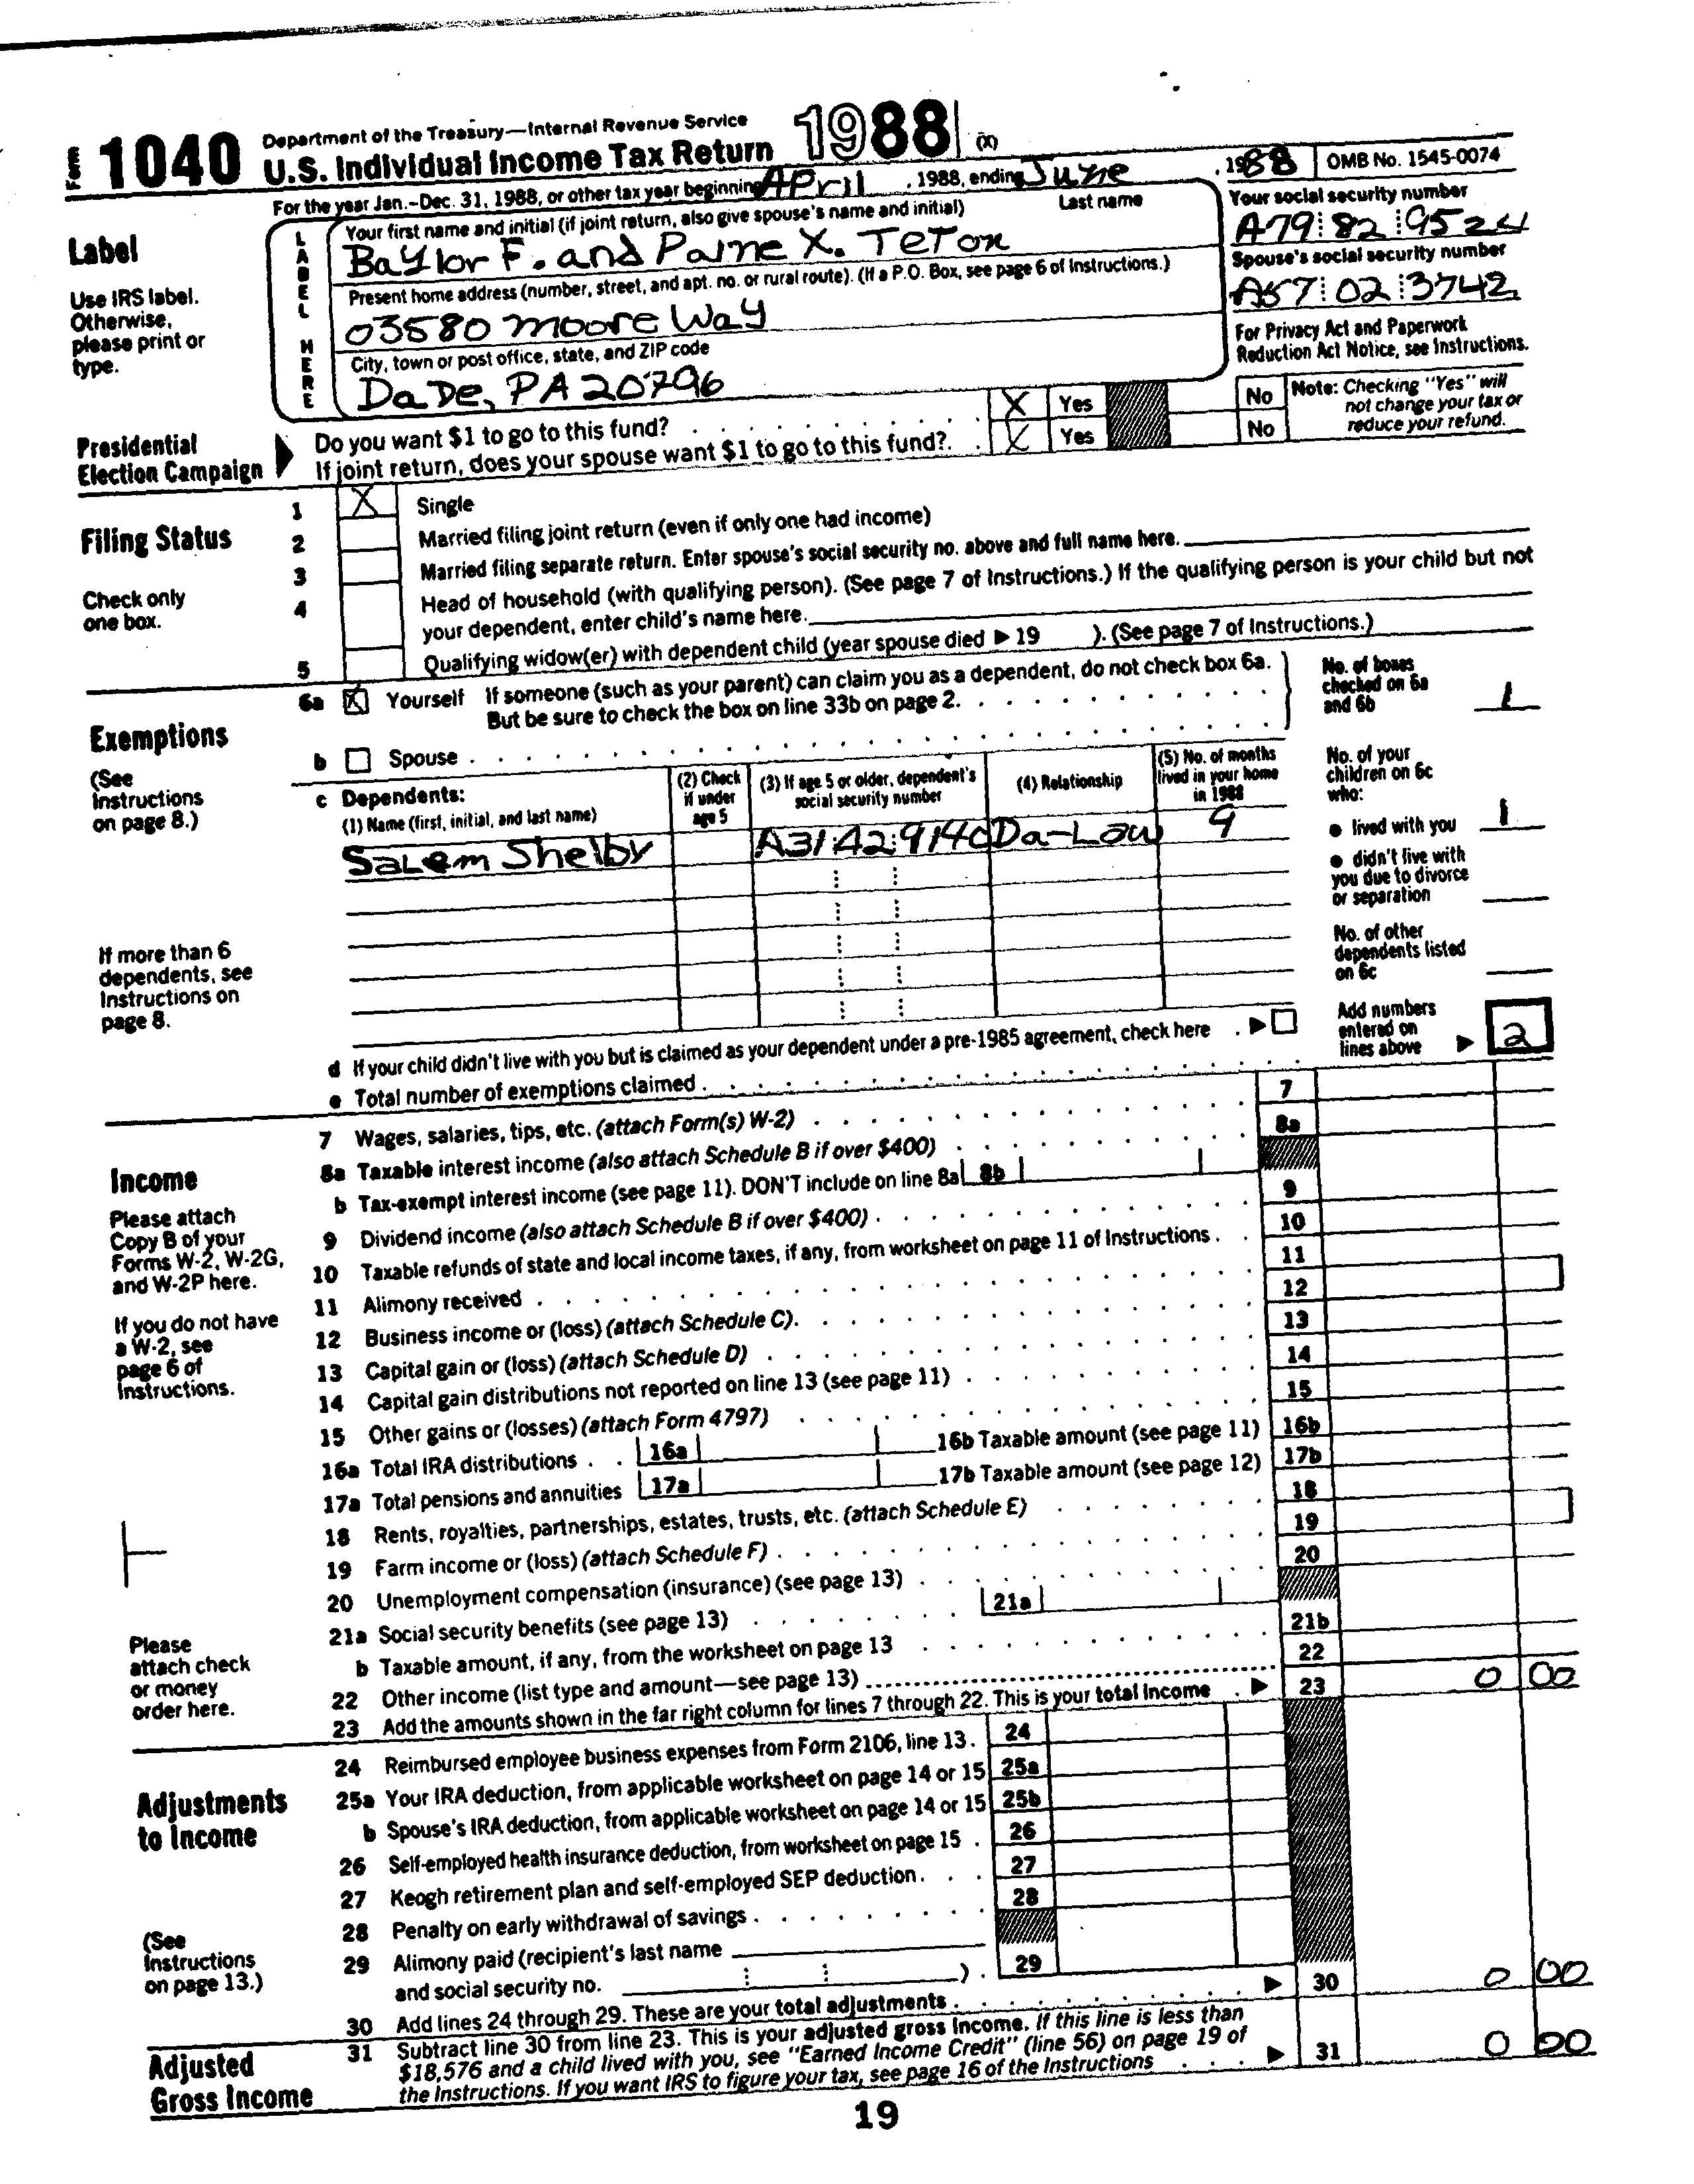 Form 1040 Department of the Treasury—Internal Revenue Service
U.S. Individual Income Tax Return 1988 (X)
For the year Jan.-Dec. 31, 1988, or other tax year beginning April , 1988, ending June , 1988 OMB No. 1545-0074
Label
Use IRS label. Otherwise, please print or type.
LABEL HERE
Your first name and initial (if joint return, also give spouse's name and initial) Last name
Baylor F. and Paine X. Teton
Your social security number
A79 82 9524
Present home address (number, street, and apt. no. or rural route). (If a P.O. Box, see page 6 of Instructions.)
03580 Moore Way
Spouse's social security number
A57 02 3742
City, town or post office, state, and ZIP code
Dade, PA 20796
For Privacy Act and Paperwork Reduction Act Notice, see Instructions.
Presidential Election Campaign
Do you want $1 to go to this fund? X Yes No
If joint return, does your spouse want $1 to go to this fund?. X Yes No
Note: Checking "Yes" will not change your tax or reduce your refund.
Filing Status
Check only one box.
1 X Single
2 Married filing joint return (even if only one had income)
3 Married filing separate return. Enter spouse's social security no. above and full name here.
4 Head of household (with qualifying person). (See page 7 of Instructions.) If the qualifying person is your child but not
your dependent, enter child's name here.
5 Qualifying widow(er) with dependent child (year spouse died ▶ 19 ). (See page 7 of Instructions.)
Exemptions
(See Instructions on page 8.)
6a X Yourself If someone (such as your parent) can claim you as a dependent, do not check box 6a.
But be sure to check the box on line 33b on page 2.
b Spouse
No. of boxes checked on 6a and 6b 1
c Dependents:
(1) Name (first, initial, and last name)
(2) Check if under age 5
(3) If age 5 or older, dependent's social security number
(4) Relationship
(5) No. of months lived in your home in 1988
Salem Shelby A31 42 9140 Da-Law 9
No. of your children on 6c who:
● lived with you 1
● didn't live with you due to divorce or separation
No. of other dependents listed on 6c
If more than 6 dependents, see Instructions on page 8.
d If your child didn't live with you but is claimed as your dependent under a pre-1985 agreement, check here ▶
e Total number of exemptions claimed
Add numbers entered on lines above ▶ 2
Income
Please attach Copy B of your Forms W-2, W-2G, and W-2P here.
If you do not have a W-2, see page 6 of Instructions.
Please attach check or money order here.
7 Wages, salaries, tips, etc. (attach Form(s) W-2) 7
8a Taxable interest income (also attach Schedule B if over $400) 8a
b Tax-exempt interest income (see page 11). DON'T include on line 8a 8b
9 Dividend income (also attach Schedule B if over $400) 9
10 Taxable refunds of state and local income taxes, if any, from worksheet on page 11 of Instructions 10
11 Alimony received 11
12 Business income or (loss) (attach Schedule C). 12
13 Capital gain or (loss) (attach Schedule D) 13
14 Capital gain distributions not reported on line 13 (see page 11) 14
15 Other gains or (losses) (attach Form 4797) 15
16a Total IRA distributions 16a 16b Taxable amount (see page 11) 16b
17a Total pensions and annuities 17a 17b Taxable amount (see page 12) 17b
18 Rents, royalties, partnerships, estates, trusts, etc. (attach Schedule E) 18
19 Farm income or (loss) (attach Schedule F) 19
20 Unemployment compensation (insurance) (see page 13) 20
21a Social security benefits (see page 13) 21a
b Taxable amount, if any, from the worksheet on page 13 21b
22 Other income (list type and amount—see page 13) 22
23 Add the amounts shown in the far right column for lines 7 through 22. This is your total income ▶ 23 0 00
Adjustments to Income
(See Instructions on page 13.)
24 Reimbursed employee business expenses from Form 2106, line 13. 24
25a Your IRA deduction, from applicable worksheet on page 14 or 15 25a
b Spouse's IRA deduction, from applicable worksheet on page 14 or 15 25b
26 Self-employed health insurance deduction, from worksheet on page 15 26
27 Keogh retirement plan and self-employed SEP deduction 27
28 Penalty on early withdrawal of savings 28
29 Alimony paid (recipient's last name
and social security no. ) 29
30 Add lines 24 through 29. These are your total adjustments ▶ 30 0 00
Adjusted Gross Income
31 Subtract line 30 from line 23. This is your adjusted gross income. If this line is less than
$18,576 and a child lived with you, see "Earned Income Credit" (line 56) on page 19 of
the Instructions. If you want IRS to figure your tax, see page 16 of the Instructions ▶ 31 0 00
19